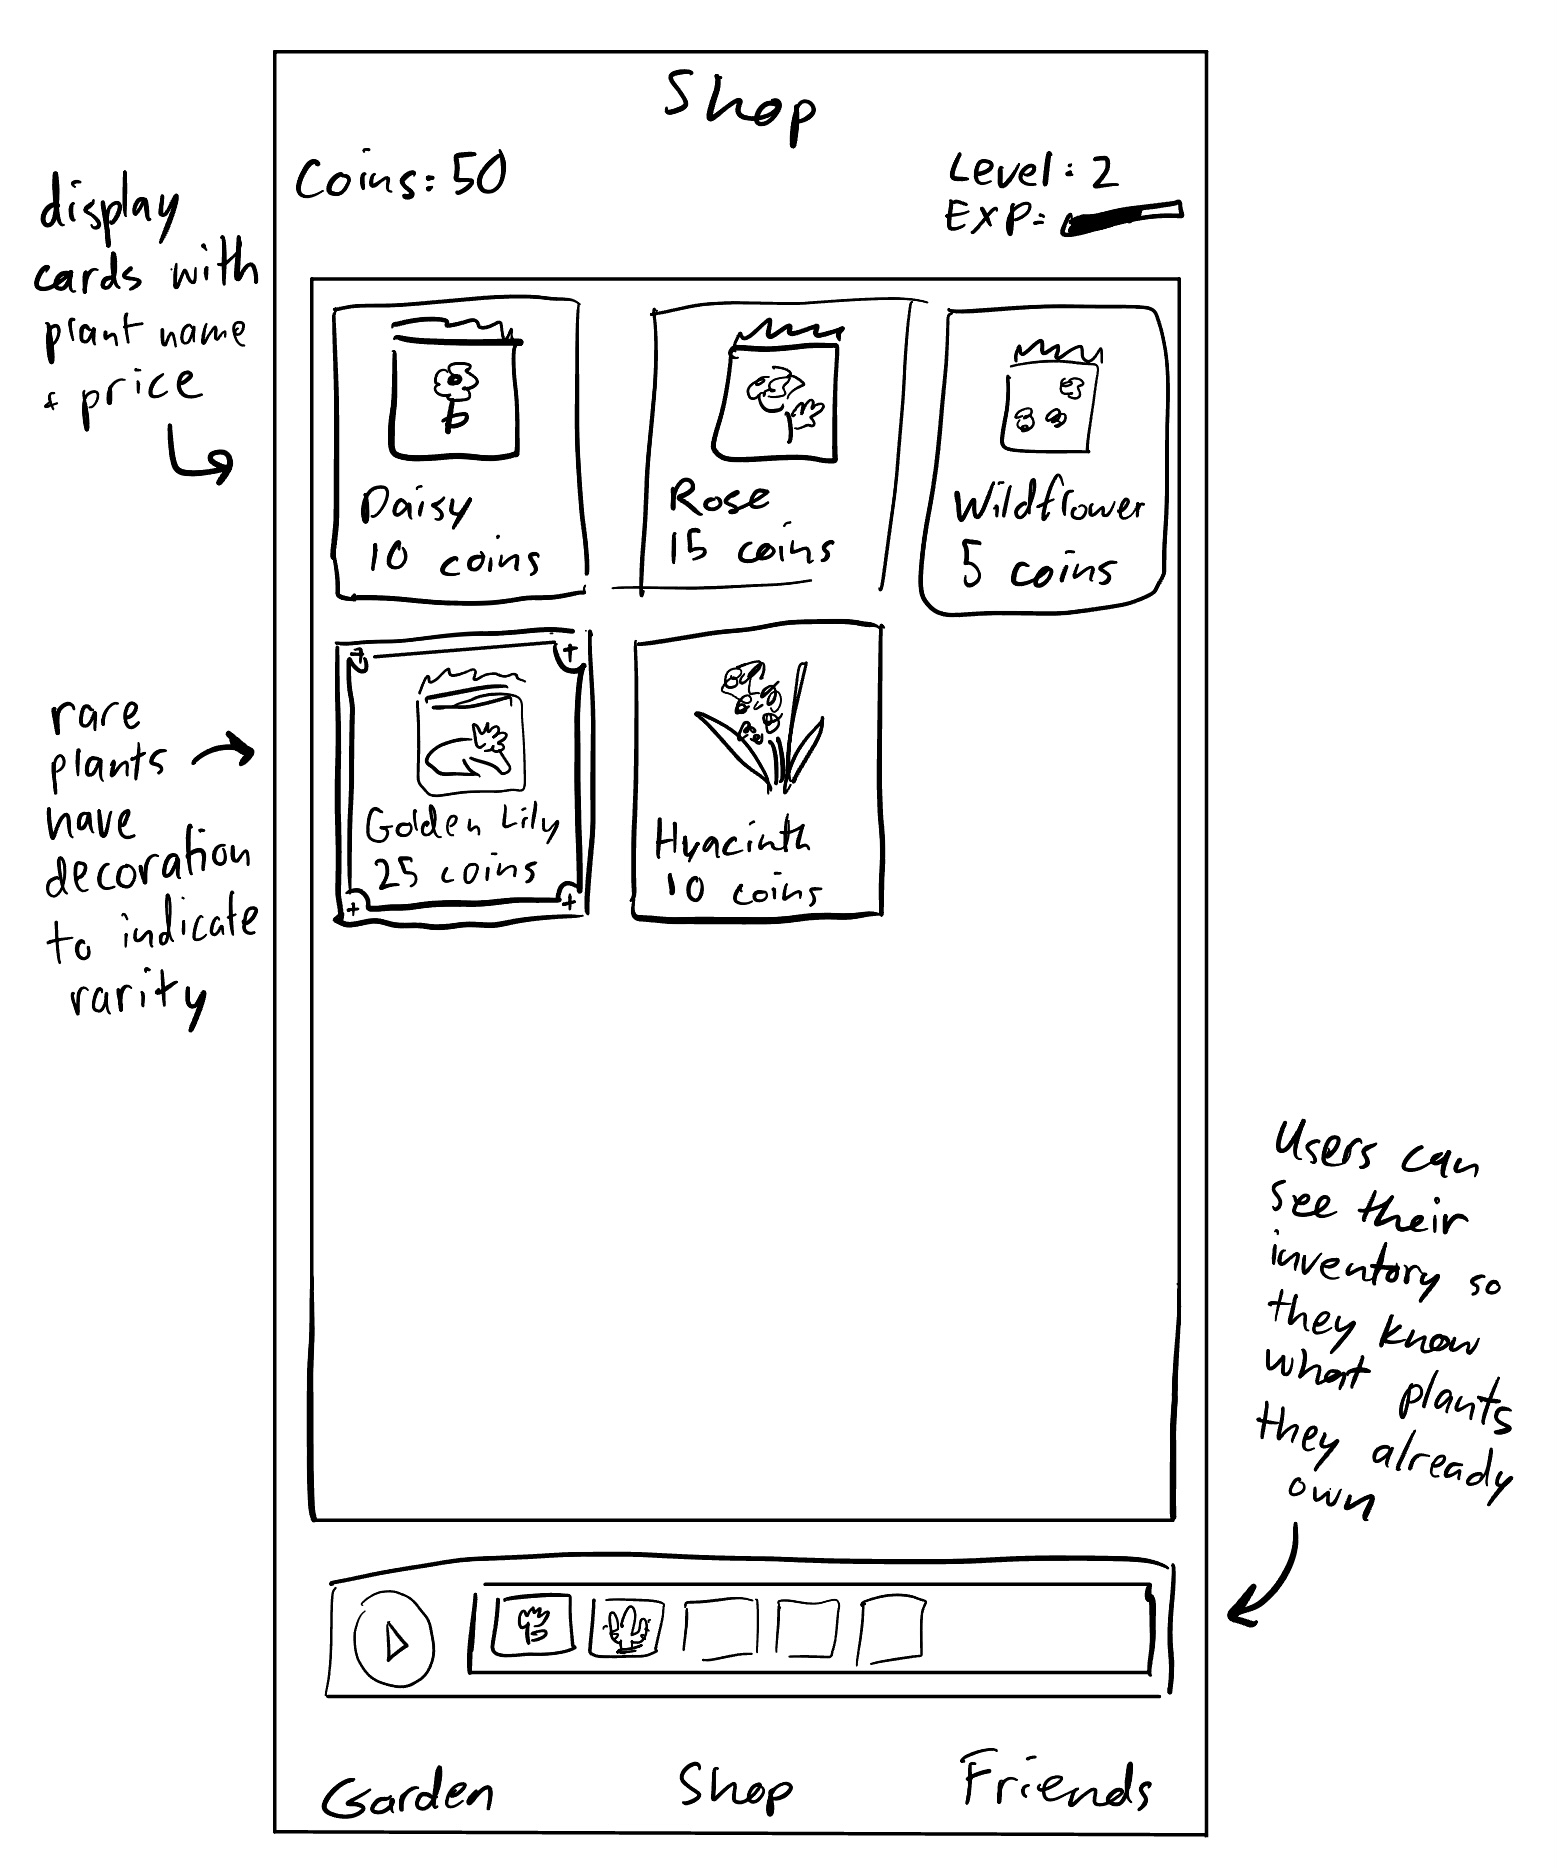 Shop
Coins: 50
Level: 2
EXP:
display
cards with
plant name
+ price
Daisy
10 coins
Rose
15 coins
Wildflower
5 coins
rare
plants
have
decoration
to indicate
rarity
Golden Lily
25 coins
Hyacinth
10 coins
Users can
see their
inventory so
they know
what plants
they already
own
Garden
Shop
Friends